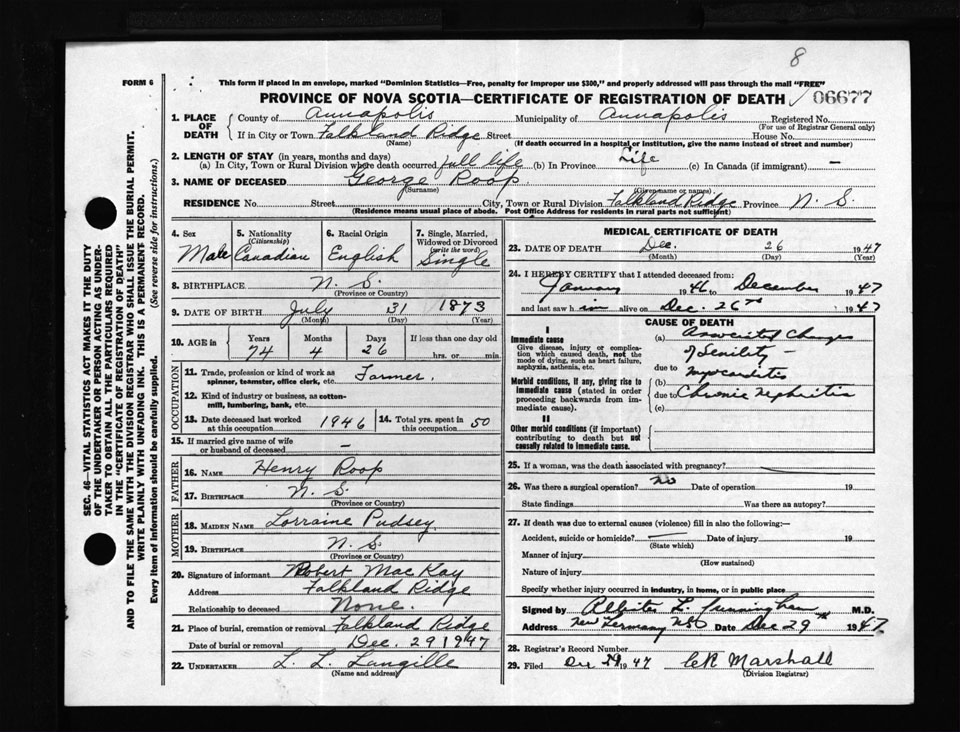 8
FORM 6
This form if placed in an envelope, marked "Dominion Statistics—Free, penalty for improper use $300," and properly addressed will pass through the mail "FREE"
PROVINCE OF NOVA SCOTIA—CERTIFICATE OF REGISTRATION OF DEATH 06677
1. PLACE OF DEATH County of Annapolis Municipality of Annapolis Registered No.
(For use of Registrar General only)
If in City or Town Falkland Ridge Street House No.
(Name) (If death occurred in a hospital or institution, give the name instead of street and number)
2. LENGTH OF STAY (in years, months and days)
(a) In City, Town or Rural Division where death occurred full life (b) In Province Life (c) In Canada (if immigrant) —
3. NAME OF DECEASED George Roop
(Surname) (Given name or names)
RESIDENCE No. Street City, Town or Rural Division Falkland Ridge Province N. S.
(Residence means usual place of abode. Post Office Address for residents in rural parts not sufficient)
4. Sex 5. Nationality (Citizenship) 6. Racial Origin 7. Single, Married, Widowed or Divorced (write the word)
Male Canadian English Single
8. BIRTHPLACE N. S.
(Province or Country)
9. DATE OF BIRTH July 31 1873
(Month) (Day) (Year)
10. AGE in Years Months Days If less than one day
74 4 26 hrs. or min.
OCCUPATION
11. Trade, profession or kind of work as spinner, teamster, office clerk, etc. Farmer.
12. Kind of industry or business, as cotton-mill, lumbering, bank, etc.
13. Date deceased last worked at this occupation 1946 14. Total yrs. spent in this occupation 50
15. If married give name of wife or husband of deceased —
FATHER
16. NAME Henry Roop
17. BIRTHPLACE N. S.
(Province or Country)
MOTHER
18. MAIDEN NAME Lorraine Pudsey
19. BIRTHPLACE N. S.
(Province or Country)
20. Signature of informant Robert MacKay
Address Falkland Ridge
Relationship to deceased None.
21. Place of burial, cremation or removal Falkland Ridge
Date of burial or removal Dec. 29 1947
22. UNDERTAKER L. L. Langille
(Name and address)
MEDICAL CERTIFICATE OF DEATH
23. DATE OF DEATH Dec. 26 1947
(Month) (Day) (Year)
24. I HEREBY CERTIFY that I attended deceased from:
January 1946 to December 1947
and last saw him alive on Dec. 26th 1947
CAUSE OF DEATH
I
Immediate cause
Give disease, injury or complication which caused death, not the mode of dying, such as heart failure, asphyxia, asthenia, etc.
(a) Associated Changes
of Senility —
due to Myocarditis
Morbid conditions, if any, giving rise to immediate cause (stated in order proceeding backwards from immediate cause).
(b)
due to Chronic Nephritis
(c)
II
Other morbid conditions (if important) contributing to death but not causally related to immediate cause.
25. If a woman, was the death associated with pregnancy?
26. Was there a surgical operation? no Date of operation 19
State findings Was there an autopsy?
27. If death was due to external causes (violence) fill in also the following:—
Accident, suicide or homicide? — Date of injury 19
(State which)
Manner of injury
(How sustained)
Nature of injury
Specify whether injury occurred in industry, in home, or in public place
Signed by L. Cunningham M.D.
Address New Germany NS Date Dec 29th 1947
28. Registrar's Record Number
29. Filed Dec 29 1947 CR Marshall
(Division Registrar)
SEC. 46—VITAL STATISTICS ACT MAKES IT THE DUTY
OF THE UNDERTAKER OR PERSON ACTING AS UNDER-
TAKER TO OBTAIN ALL THE PARTICULARS REQUIRED
IN THE "CERTIFICATE OF REGISTRATION OF DEATH"
AND TO FILE THE SAME WITH THE DIVISION REGISTRAR WHO SHALL ISSUE THE BURIAL PERMIT.
WRITE PLAINLY WITH UNFADING INK. THIS IS A PERMANENT RECORD.
Every item of information should be carefully supplied. (See reverse side for instructions.)